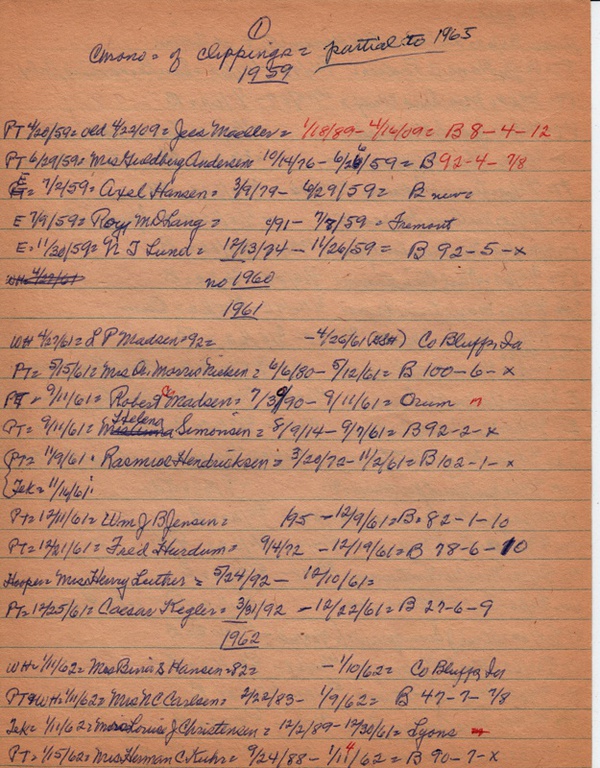 ①
Chrono = of clippings = partial to 1965
1959
PT 4/20/59 = old 4/22/09 = Jess Moeller = 1/18/89 - 4/16/09 = B 8-4-12
PT 6/29/59 = Mrs Goldberg Anderson = 10/14/76 - 6/26/59 = B 92-4-7/8
E = 7/2/59 = Axel Hansen = 3/9/79 - 6/29/59 = B new =
E 7/9/59 = Roy McD Lang = 9/91 - 7/8/59 = Fremont
E = 11/20/59 = N J Lund = 12/13/74 - 11/26/59 = B 92-5-x
WH = 4/27/61 no 1960
1961
WH 4/27/61 = L P Madsen = 92 = - 4/26/61 Co Bluffs, Ia
PT = 5/15/61 = Mrs Ole Morris Nielsen = 6/6/80 - 5/12/61 = B 100-6-x
PT = 9/11/61 = Robert C Madsen = 7/30/90 - 9/11/61 = Orum n
PT = 9/11/61 = Helena Simonsen = 8/9/14 - 9/7/61 = B 92-2-x
PT = 11/9/61 = Rasmus Hendricksen = 3/20/72 - 11/2/61 = B 102-1-x
Tek = 11/16/61
PT = 12/11/61 = Wm J B Jensen = /95 - 12/9/61 = B = 82-1-10
PT = 12/21/61 = Fred Hurdum = 9/4/72 - 12/19/61 = B 78-6-10
Hooper = Mrs Henry Luther = 5/24/92 - 12/10/61 =
PT = 12/25/61 = Caesar Kegler = 3/31/92 - 12/22/61 = B 27-6-9
1962
WH = 1/11/62 = Mrs S Hansen = 82 = - 1/10/62 = Co Bluffs, Ia
PT & WH 1/11/62 = Mrs N C Carlsen = 2/22/83 - 1/9/62 = B 47-7-7/8
Tek = 1/11/62 = Louise J Christensen = 12/2/89 - 12/30/61 = Lyons n
PT = 1/15/62 = Mrs Herman C Kuhr = 9/24/88 - 1/14/62 = B 90-7-x